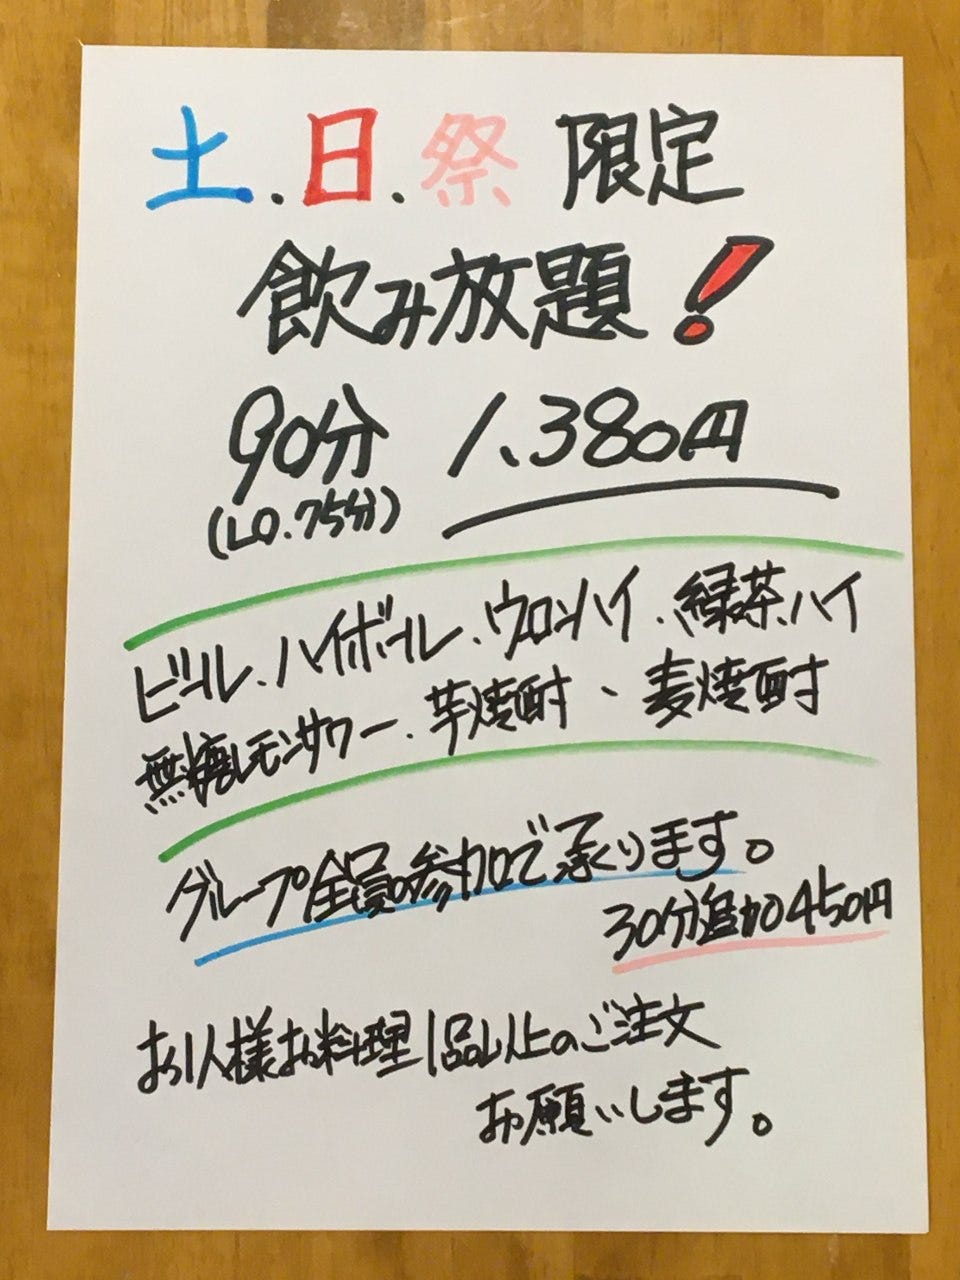 土.日.祭 限定
飲み放題!
90分 1,380円
(LO.75分)
ビール、ハイボール、ウーロンハイ、緑茶ハイ
無糖レモンサワー、芋焼酎、麦焼酎
グループ全員の参加で承ります。
30分追加450円
お1人様お料理1品以上のご注文
お願いします。